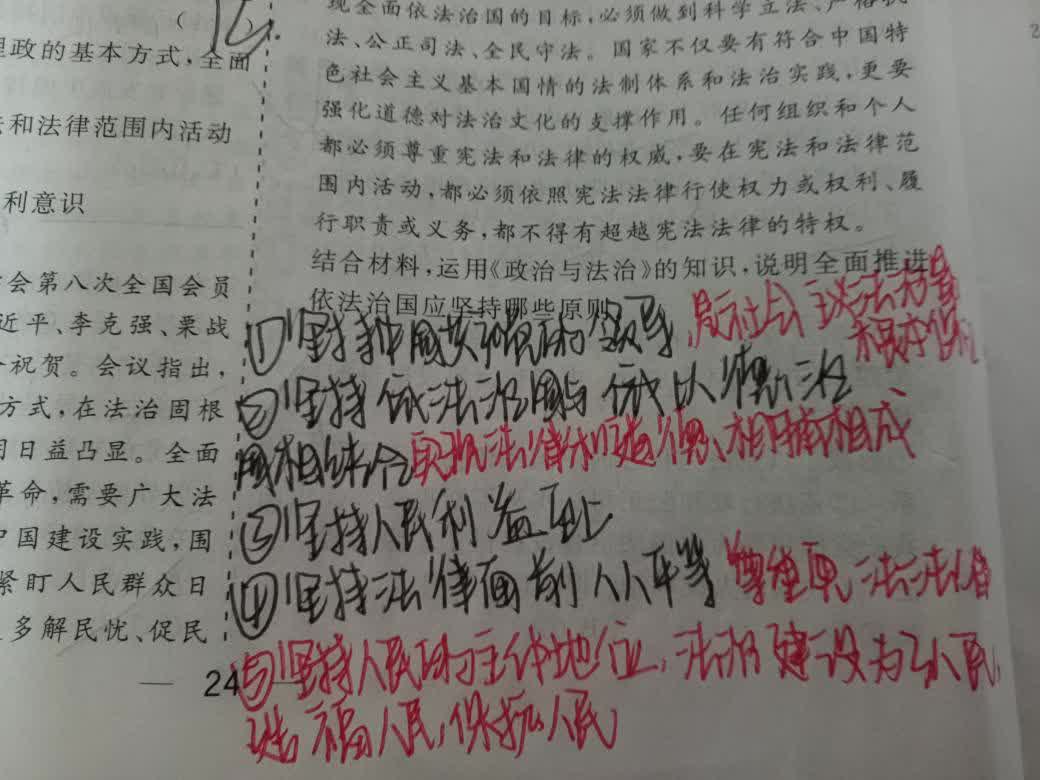 理政的基本方式,全面
和法律范围内活动
利意识
会第八次全国会员
近平、李克强、栗战
祝贺。会议指出,
方式,在法治固根
日益凸显。全面
革命,需要广大法
中国建设实践,围
紧盯人民群众日
多解民忧、促民
24
现全面依法治国的目标,必须做到科学立法、严格执
法、公正司法、全民守法。国家不仅要有符合中国特
色社会主义基本国情的法制体系和法治实践,更要
强化道德对法治文化的支撑作用。任何组织和个人
都必须尊重宪法和法律的权威,要在宪法和法律范
围内活动,都必须依照宪法法律行使权力或权利、履
行职责或义务,都不得有超越宪法法律的特权。
结合材料,运用《政治与法治》的知识,说明全面推进
依法治国应坚持哪些原则
①坚持中国共产党的领导,是社会主义法治最
根本保证
②坚持依法治国与依以德治
国相结合实现法律和道德、相辅相成
③坚持人民利益至上
④坚持法律面前人人平等 尊重宪法法律
⑤坚持人民的主体地位,法治建设为了人民,
造福人民,保护人民